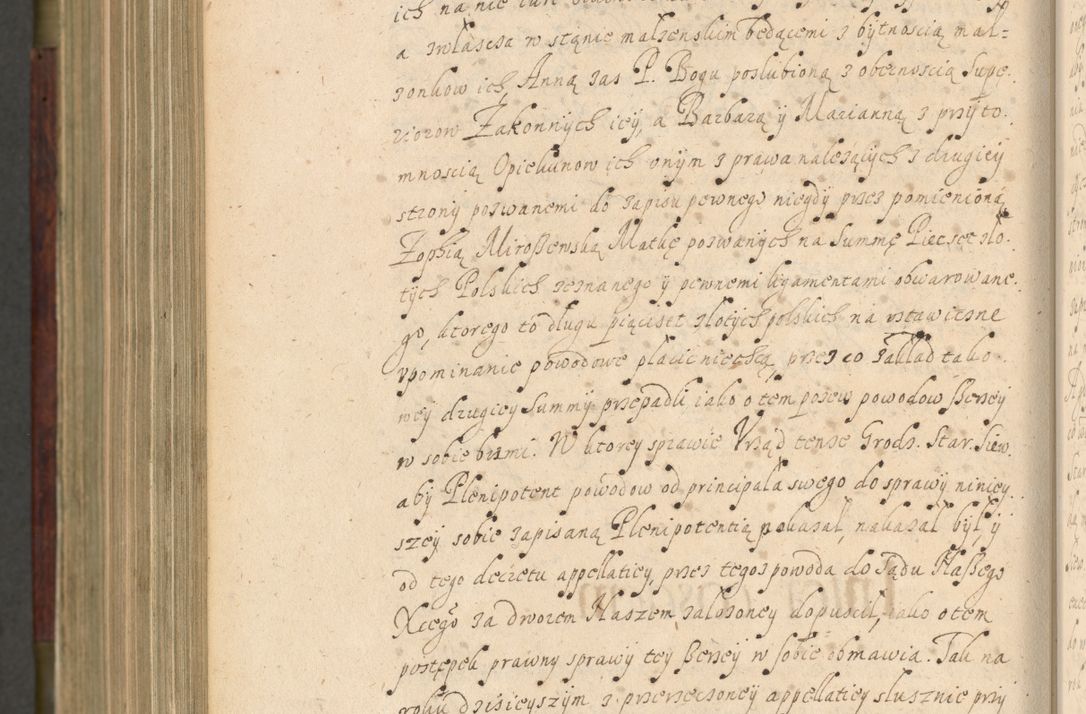 ich na nie
a zwłascza w stąnie małzenskim będącemi z bytnoscią mał=
zonkow ich, Anną zas P. Bogu poslubioną z obecnoscią Supe.
riorow Zakonnych iey, a Barbarą y Marianną z przyto.
mnoscią Opiekunow ich onym z prawa należących z drugiey
strony pozwanemi do zapisu pewnego niegdy przez pomienioną
Zophią Miroszewską Matkę pozwanych na Summę Piecset zło.
tych Polskich zeznanego y pewnemi ligamentami obwarowane.
go, ktorego to długu piąciset złotych polskich na vstawiczne
vpominanie powodowe płacic niechcą, przez co zakład tako.
wey drugiey Summy przepadli iako o tem pozew powodow szerzey
w sobie brzmi. W ktorey sprawie Vrząd tenze Grodz. Star. Siew.
aby Plenipotent powodow od principała swego do sprawy niniey.
szey sobie zapisaną Plenipotentią pokazał, nakazał był, y
od tego decretu appellatiey, przez tegoz powoda do Sądu Naszego
Xcego za dworem Naszem załozoney dopuscił, iako o tem
postępek prawny sprawy tey szerzey w sobie obmawia. Tak na
roku dzisieyszym z przerzeczoney appellatiey słusznie przy